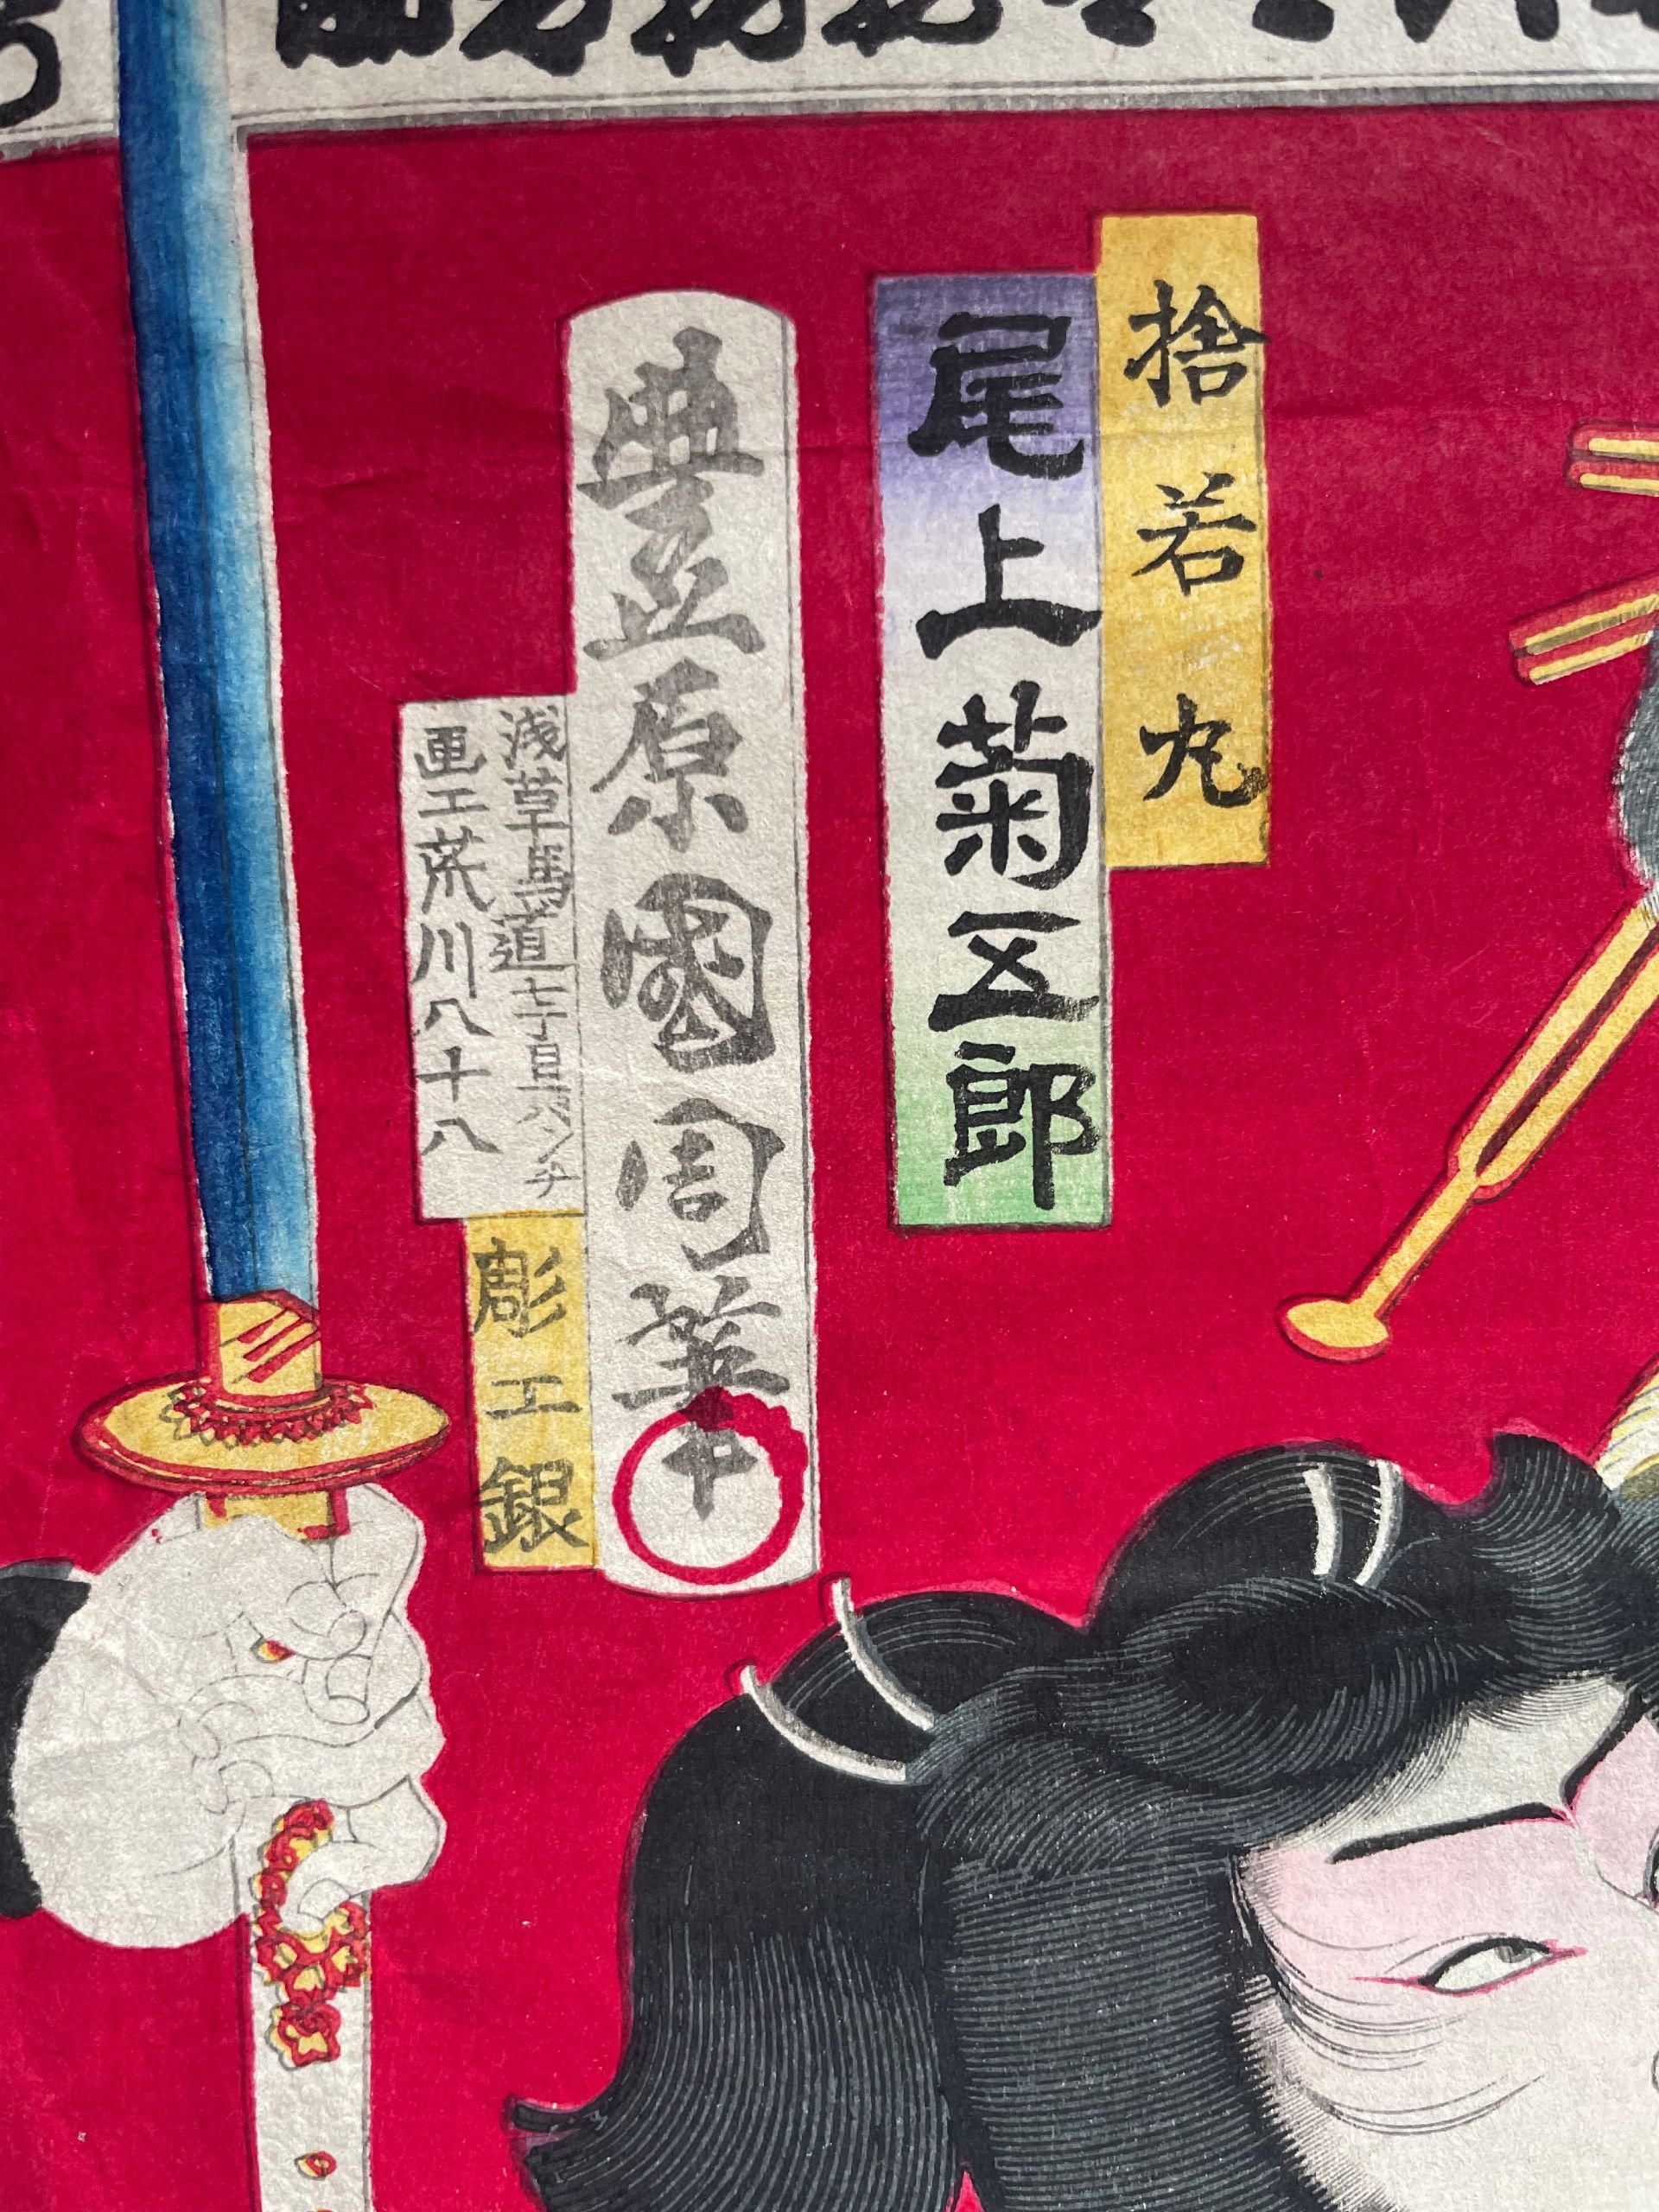 捨若丸
尾上菊五郎
豊原國周筆
浅草馬道七丁目
画工荒川八十八
彫工銀